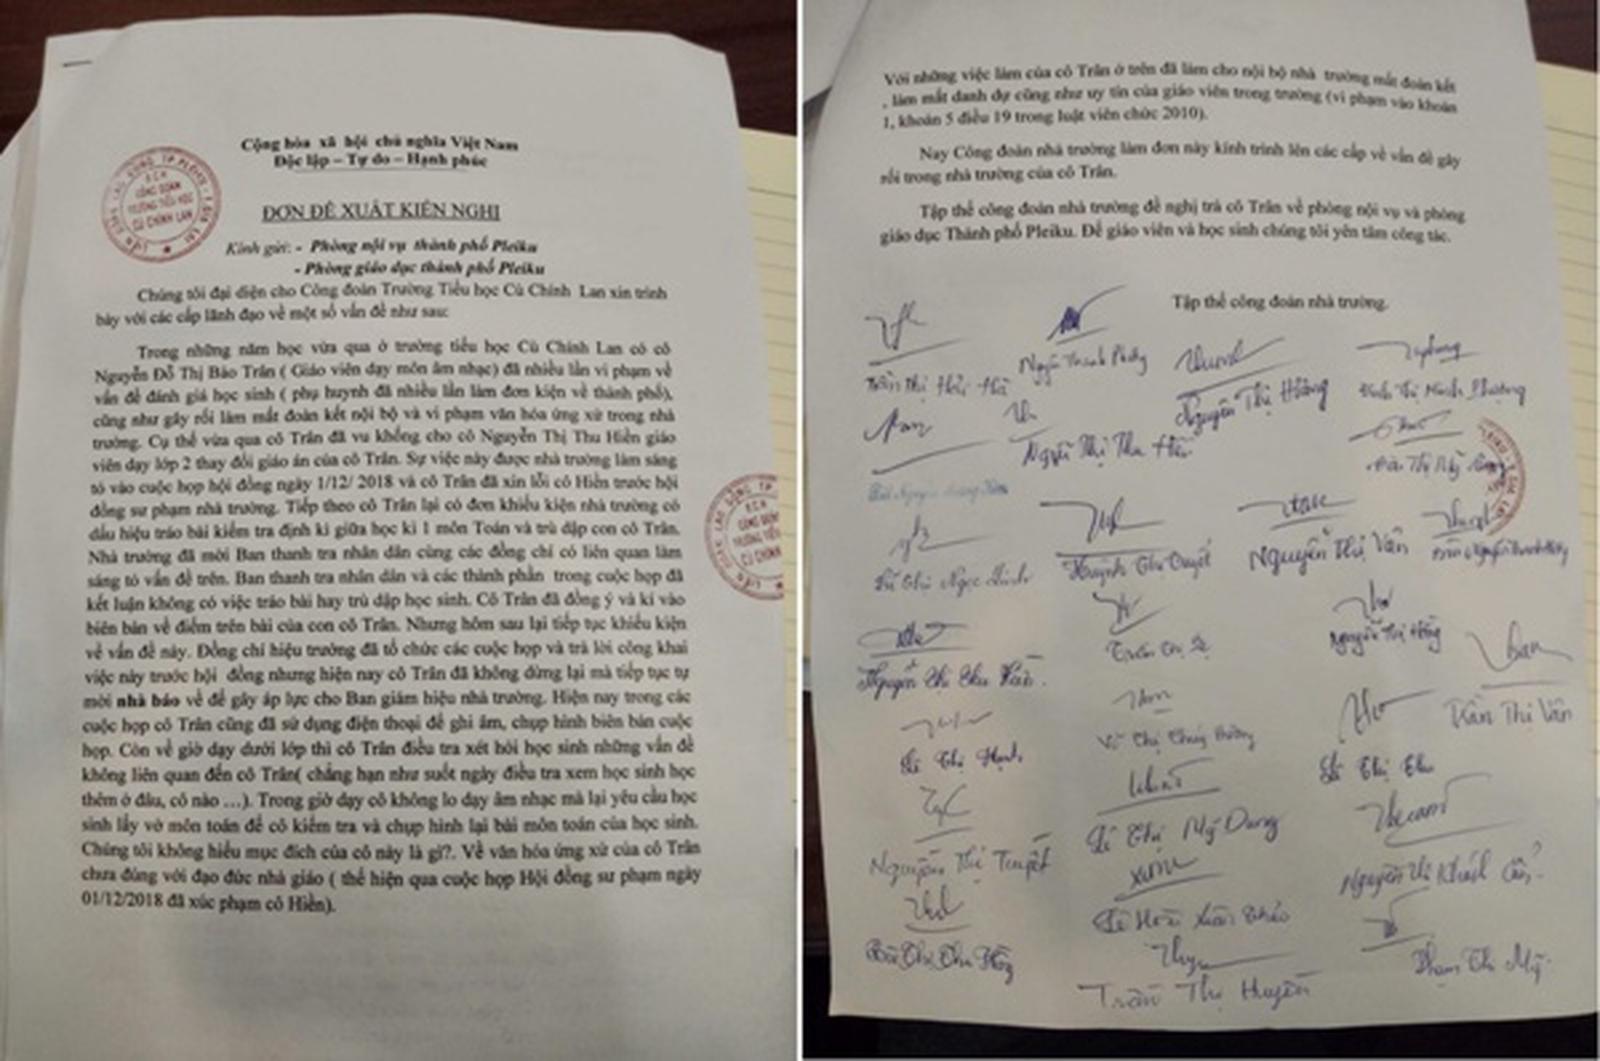 Cộng hòa xã hội chủ nghĩa Việt Nam
Độc lập – Tự do – Hạnh phúc
CÔNG ĐOÀN
TRƯỜNG TIỂU HỌC
CÙ CHÍNH LAN
ĐƠN ĐỀ XUẤT KIẾN NGHỊ
Kính gửi: - Phòng nội vụ thành phố Pleiku
- Phòng giáo dục thành phố Pleiku
Chúng tôi đại diện cho Công đoàn Trường Tiểu học Cù Chính Lan xin trình
bày với các cấp lãnh đạo về một số vấn đề như sau:
Trong những năm học vừa qua ở trường tiểu học Cù Chính Lan có cô
Nguyễn Đỗ Thị Bảo Trân ( Giáo viên dạy môn âm nhạc) đã nhiều lần vi phạm về
vấn đề đánh giá học sinh ( phụ huynh đã nhiều lần làm đơn kiện về thành phố),
cũng như gây rối làm mất đoàn kết nội bộ và vi phạm văn hóa ứng xử trong nhà
trường. Cụ thể vừa qua cô Trân đã vu khống cho cô Nguyễn Thị Thu Hiền giáo
viên dạy lớp 2 thay đổi giáo án của cô Trân. Sự việc này được nhà trường làm sáng
tỏ vào cuộc họp hội đồng ngày 1/12/ 2018 và cô Trân đã xin lỗi cô Hiền trước hội
đồng sư phạm nhà trường. Tiếp theo cô Trân lại có đơn khiếu kiện nhà trường có
dấu hiệu tráo bài kiểm tra định kì giữa học kì 1 môn Toán và trù dập con cô Trân.
Nhà trường đã mời Ban thanh tra nhân dân cùng các đồng chí có liên quan làm
sáng tỏ vấn đề trên. Ban thanh tra nhân dân và các thành phần trong cuộc họp đã
kết luận không có việc tráo bài hay trù dập học sinh. Cô Trân đã đồng ý và kí vào
biên bản về điểm trên bài của con cô Trân. Nhưng hôm sau lại tiếp tục khiếu kiện
về vấn đề này. Đồng chí hiệu trưởng đã tổ chức các cuộc họp và trả lời công khai
việc này trước hội đồng nhưng hiện nay cô Trân đã không dừng lại mà tiếp tục tự
mời nhà báo về để gây áp lực cho Ban giám hiệu nhà trường. Hiện nay trong các
cuộc họp cô Trân cũng đã sử dụng điện thoại để ghi âm, chụp hình biên bản cuộc
họp. Còn về giờ dạy dưới lớp thì cô Trân điều tra xét hỏi học sinh những vấn đề
không liên quan đến cô Trân( chẳng hạn như suốt ngày điều tra xem học sinh học
thêm ở đâu, cô nào …). Trong giờ dạy cô không lo dạy âm nhạc mà lại yêu cầu học
sinh lấy vở môn toán để cô kiểm tra và chụp hình lại bài môn toán của học sinh.
Chúng tôi không hiểu mục đích của cô này là gì?. Về văn hóa ứng xử của cô Trân
chưa đúng với đạo đức nhà giáo ( thể hiện qua cuộc họp Hội đồng sư phạm ngày
01/12/2018 đã xúc phạm cô Hiền).
Với những việc làm của cô Trân ở trên đã làm cho nội bộ nhà trường mất đoàn kết
, làm mất danh dự cũng như uy tín của giáo viên trong trường (vi phạm vào khoản
1, khoản 5 điều 19 trong luật viên chức 2010).
Nay Công đoàn nhà trường làm đơn này kính trình lên các cấp về vấn đề gây
rối trong nhà trường của cô Trân.
Tập thể công đoàn nhà trường đề nghị trả cô Trân về phòng nội vụ và phòng
giáo dục Thành phố Pleiku. Để giáo viên và học sinh chúng tôi yên tâm công tác.
Tập thể công đoàn nhà trường.
Nguyễn Thanh Phương
Nguyễn Thị Hường
Đinh Thị Minh Phượng
Nguyễn Thị Thu Hiền
Huỳnh Thị Quyết
Nguyễn Thị Vân
Nguyễn Thị Hồng
Trần Thị Vân
Lê Thị Hạnh
Lê Thị Thu
Nguyễn Thị Tuyết
Lê Thị Mỹ Dung
Lê Hoài Xuân Thảo
Trần Thị Huyền
Phạm Thị Mỹ